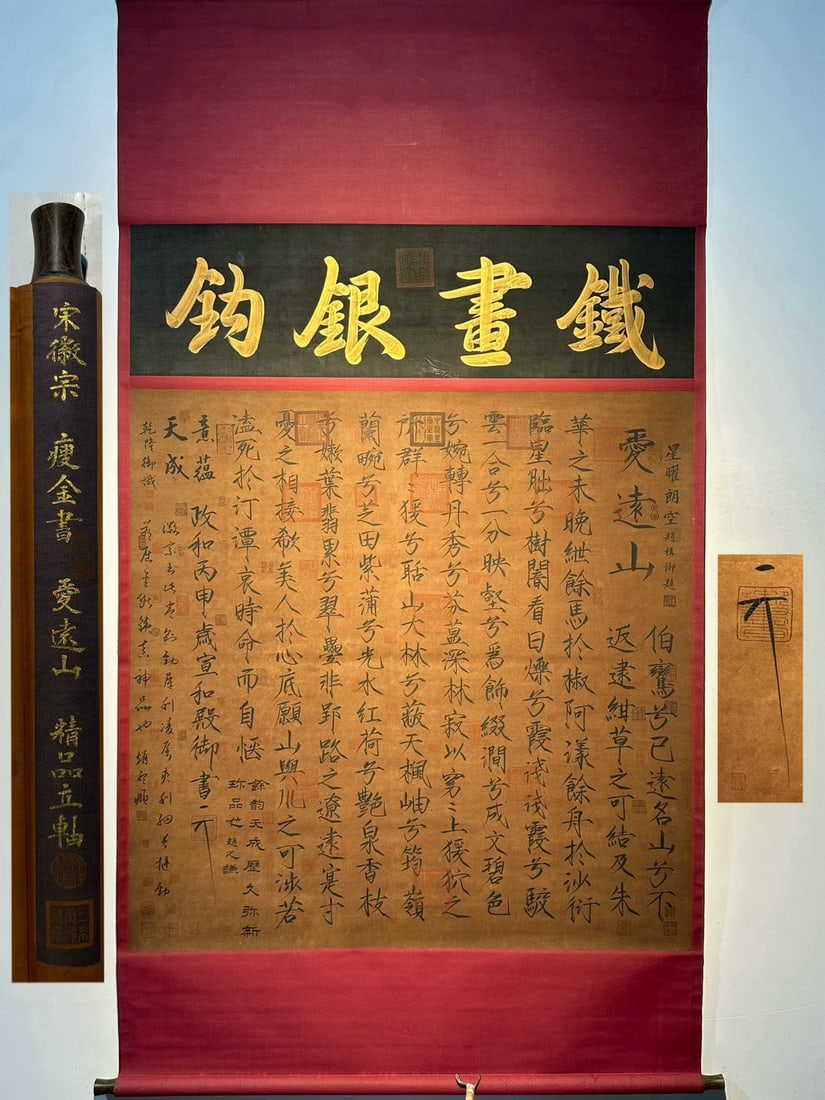 鐵畫銀鈎
星曜朗空 趙構御題
愛遠山
伯鸞兮已遠名山兮不
返逮紺草之可結及朱
華之未晚紲餘馬於椒阿漾餘舟於沙衍
臨星朏兮樹闇看日爍兮霞淺淺霞兮駮
雲一合兮一分映壑兮爲飾綴澗兮成文碧色
兮婉轉丹秀兮芬葐深林寂以窈〻上猨狖之
所群〻猨兮聒山大林兮蔽天楓岫兮筠嶺
蘭畹兮芝田紫蒲兮光水紅荷兮艷泉香枝
兮嫩葉翡累兮翠疊非郢路之遼遠寔寸
憂之相接欷美人於心底願山與川之可涉若
溘死於汀潭哀時命而自愜
餘韵天成歷久弥新
珎品也 趙之謙
意蘊
政和丙申歲宣和殿御書
天成
乾隆御識
宋徽宗 瘦金書 愛遠山 精品立軸